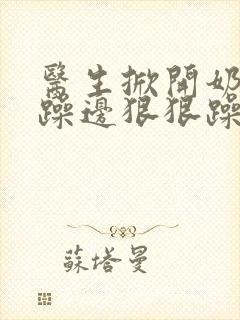 醫生掀開奶
躁邊狠狠躁
蘇塔曼